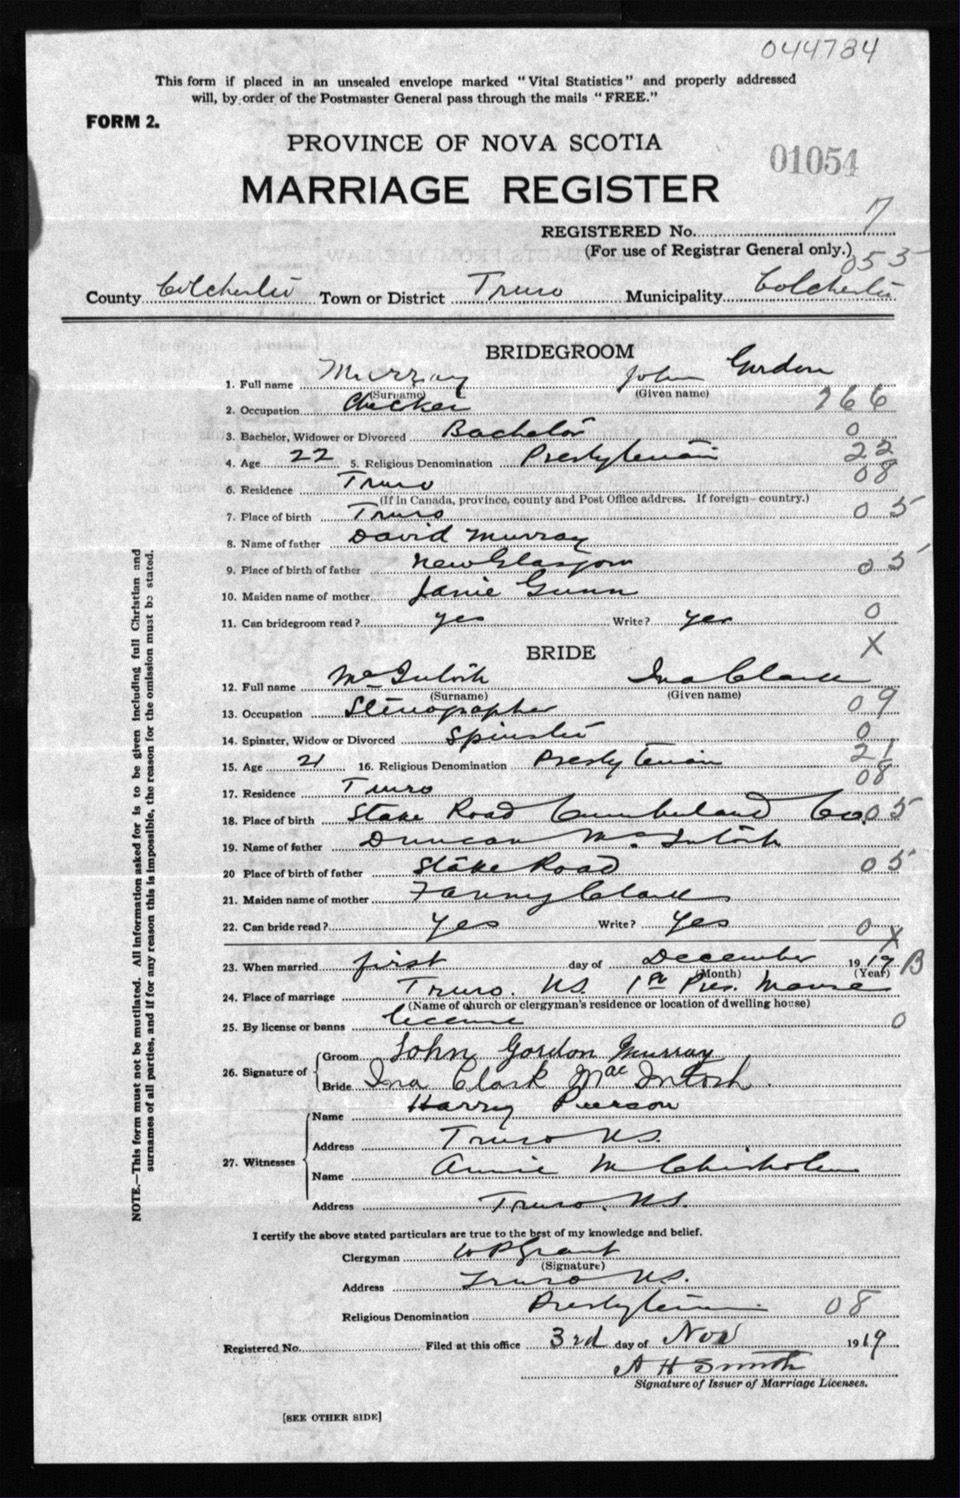 044784
This form if placed in an unsealed envelope marked "Vital Statistics" and properly addressed
will, by order of the Postmaster General pass through the mails "FREE."
FORM 2.
PROVINCE OF NOVA SCOTIA
01054
MARRIAGE REGISTER
7
REGISTERED No.
(For use of Registrar General only.)
053
County Colchester Town or District Truro Municipality Colchester
BRIDEGROOM
1. Full name Murray John Gordon
(Surname) (Given name)
2. Occupation Checker 766
3. Bachelor, Widower or Divorced Bachelor 0
4. Age 22 5. Religious Denomination Presbyterian 22
6. Residence Truro 08
(If in Canada, province, county and Post Office address. If foreign—country.)
7. Place of birth Truro 05
8. Name of father David Murray
9. Place of birth of father New Glasgow 05
10. Maiden name of mother Janie Gunn
11. Can bridegroom read? yes Write? yes 0
BRIDE X
12. Full name McIntosh Ina Clark
(Surname) (Given name)
13. Occupation Stenographer 09
14. Spinster, Widow or Divorced Spinster 0
15. Age 21 16. Religious Denomination Presbyterian 21
17. Residence Truro 08
18. Place of birth Stake Road Cumberland Co. 05
19. Name of father Duncan McIntosh
20 Place of birth of father Stake Road 05
21. Maiden name of mother Fanny Clark
22. Can bride read? Yes Write? Yes 0 X
23. When married first day of December 1919 B
(Month) (Year)
24. Place of marriage Truro. N.S. 1st Pres. Manse
(Name of church or clergyman's residence or location of dwelling house)
25. By license or banns license 0
26. Signature of Groom John Gordon Murray
Bride Ina Clark MacIntosh.
27. Witnesses Name Harry Pierson
Address Truro N.S.
Name Annie M Chisholm
Address Truro, N.S.
I certify the above stated particulars are true to the best of my knowledge and belief.
Clergyman W P Grant
(Signature)
Address Truro N.S.
Religious Denomination Presbyterian 08
Registered No. Filed at this office 3rd day of Nov 1919
A H Smith
Signature of Issuer of Marriage Licenses.
[SEE OTHER SIDE]
NOTE.—This form must not be mutilated. All information asked for is to be given including full Christian and
surnames of all parties, and if for any reason this is impossible, the reason for the omission must be stated.